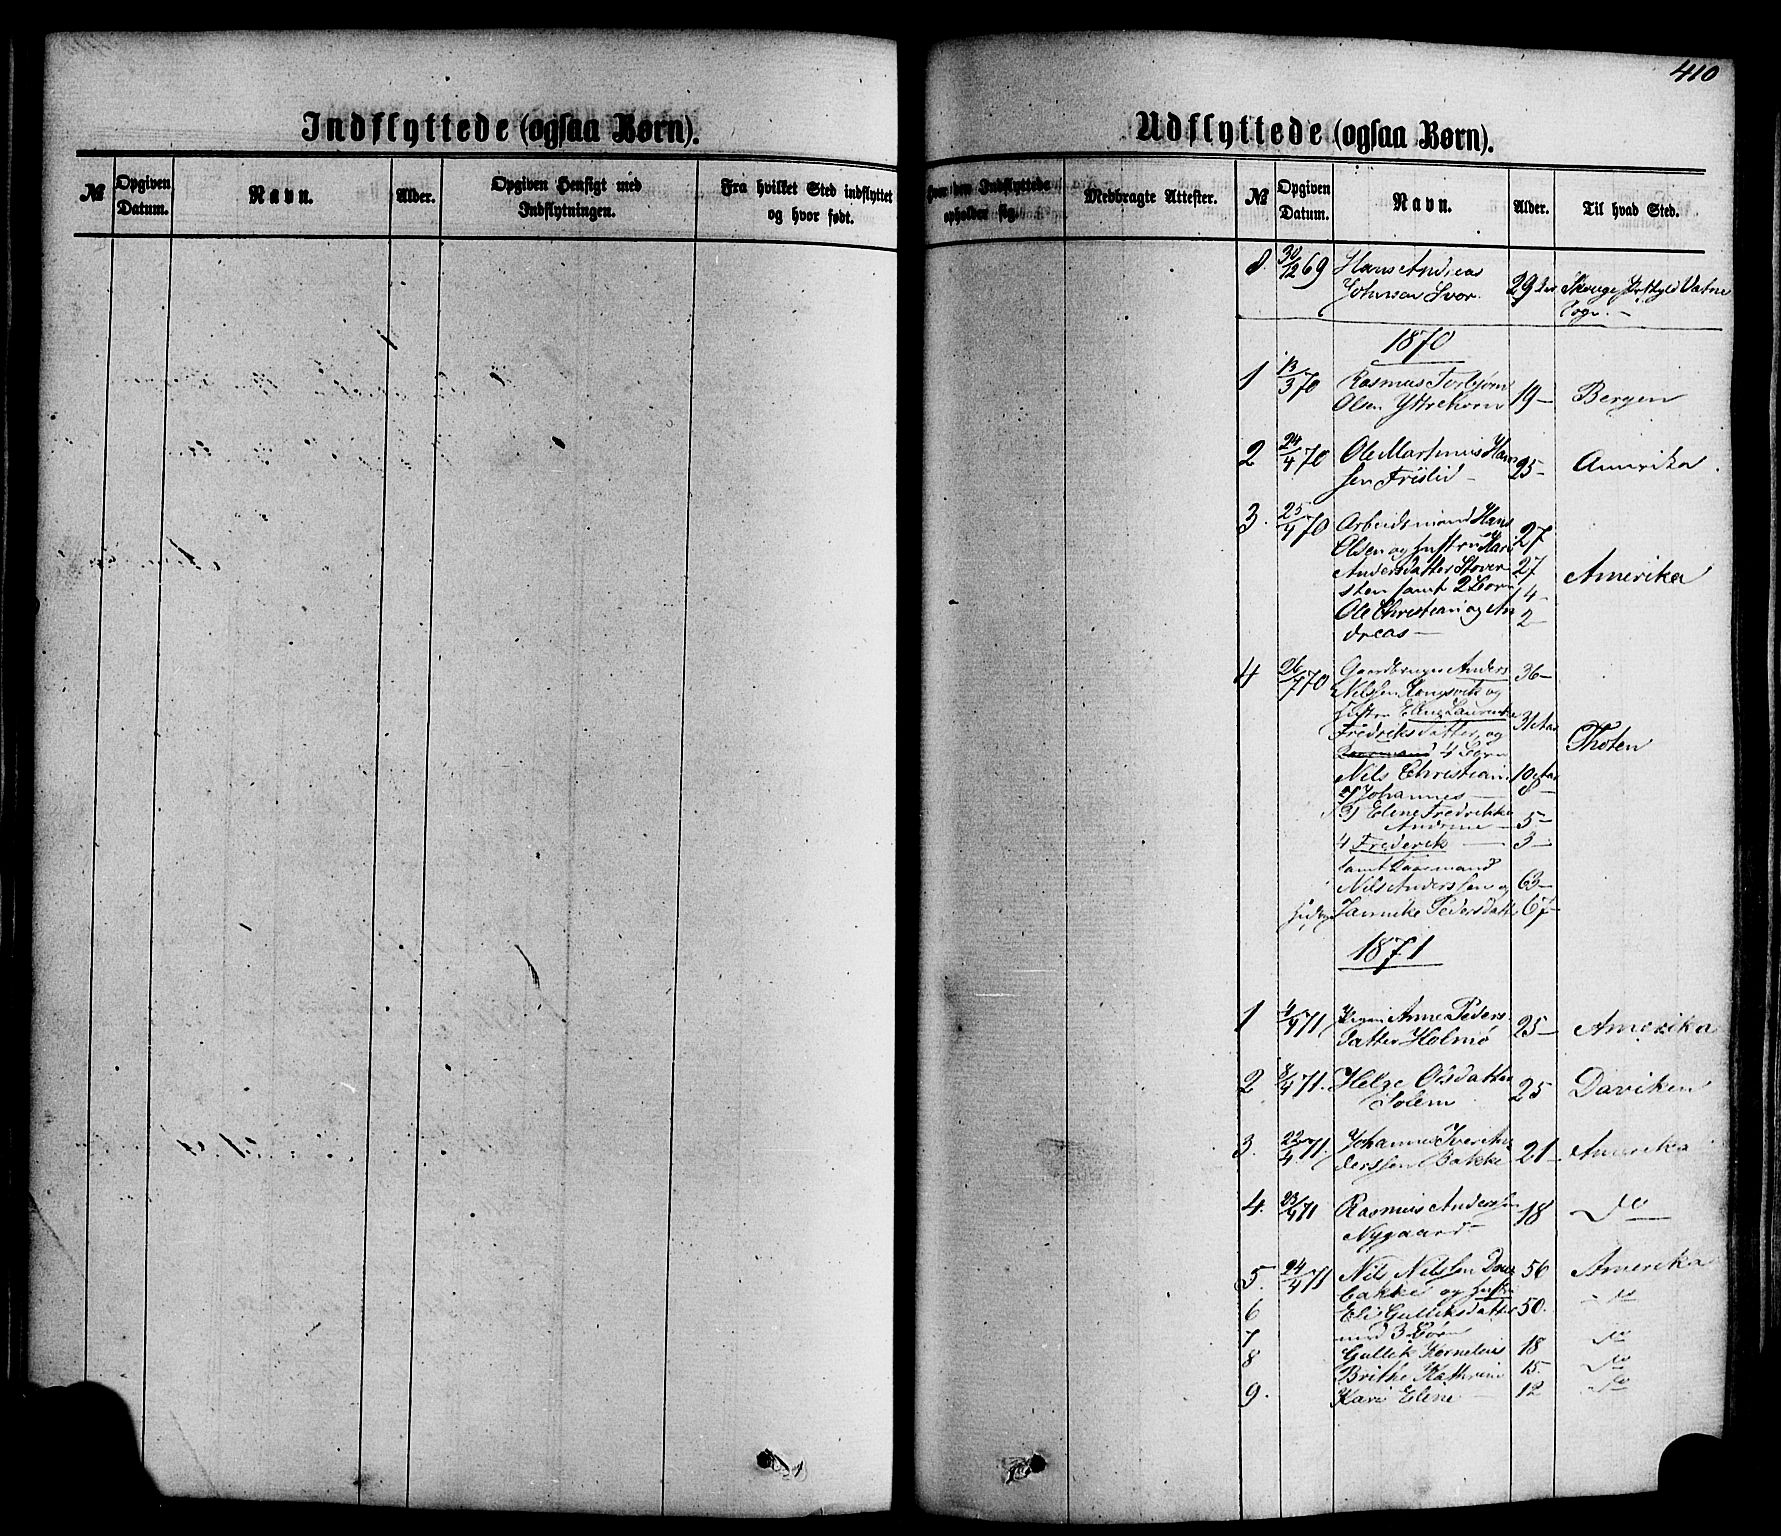 410
Indflyttede (ogsaa Børn).
№ Opgiven Datum. Navn. Alder. Opgiven Hensigt med Indflytningen. Fra hvilket Sted indflyttet og hvor født.
Udflyttede (ogsaa Børn).
Hvor den Indflyttede opholder sig. Medbragte Attester. № Opgiven Datum. Navn. Alder. Til hvad Sted.
8. 30/12 69 Hans Andreas
Johnsen 29 Vatne
Sogn.
1870
1 13/3 70 Rasmus Torbjørn
Olsen Yttrehorn 19 – Bergen
2 24/4 70 Ole Martinus Han
sen Frislid – 25 – Amerika
3. 25/4 70 Arbeidsmand Hans 27
Olsen og Hustru Kari
Andersdatter Stover 27 Amerika
sten samt 2 Børn 4 –
Ole Christian og An 2 –
dreas –
4 26/7 70 Gaardbruger Anders 36 –
Nilsen og
Hustru Eline Laurentze
Fredriksdatter, og Thoten
4 Børn
Nils Christian 10 Aar
2) Johannes – 8 –
3) Eline Fredrikke
Andrine – 5 –
4 Frederik – 3 –
samt Kaarmand
Nils Anderssen og 63 –
Jannike Pedersdatt 67 –
1871
1 1/4 71 Pigen Anne Peders
datter Holmø 25 – Amerika
2 8/4 71. Helge Olsdatter
Solem 25 Daviken
3. 22/4 71. Johannes Iver An
derssen Bakke 21 – Amerika
4. 23/4 71 Rasmus Anderssen 18 do
Nygaard –
5. 24/4 71 Nils Nilssen 56 Amerika
bakke og Hustru
6 Eli Gulliksdatter 50. – do
med 3 Børn
7 Gullik Kornelius 18 do
8 Brithe Kathrine 15. do
9. Kari Eline – 12 do